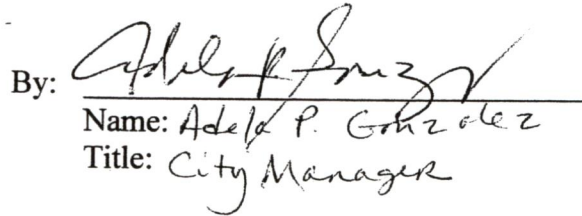 By: Adela P. Gonzalez
Name: Adela P. Gonzalez
Title: City Manager